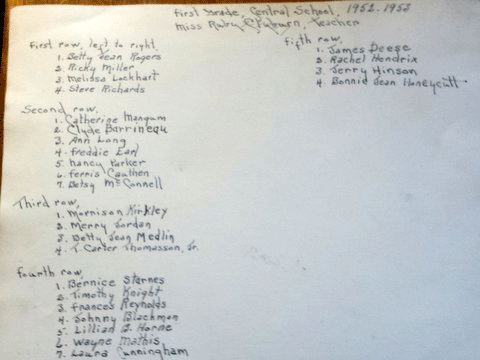 First Grade, Central School, 1952-1953
Miss Ruby Clyburn, Teacher
First row, left to right.
1. Betty Jean Rogers
2. Ricky Miller
3. Melissa Lockhart
4. Steve Richards
Second row,
1. Catherine Mangum
2. Clyde Barrineau
3. Ann Long
4. Freddie Earl
5. Nancy Parker
6. Ferris Cauthen
7. Betsy McConnell
Third row,
1. Morrison Kirkley
2. Merry Jordan
3. Betty Jean Medlin
4. T. Carter Thomasson, Jr.
Fourth row,
1. Bernice Starnes
2. Timothy Knight
3. Frances Reynolds
4. Johnny Blackmon
5. Lillian B. Horne
6. Wayne Mathis
7. Laura Cunningham
Fifth row,
1. James Deese
2. Rachel Hendrix
3. Jerry Hinson
4. Bonnie Jean Honeycutt